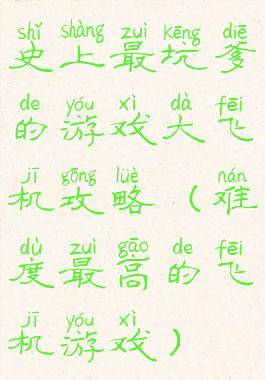 shǐ shàng zuì kēng diē
史上最坑爹
de yóu xì dà fēi
的游戏大飞
jī gōng lüè nán
机攻略（难
dù zuì gāo de fēi
度最高的飞
jī yóu xì
机游戏）